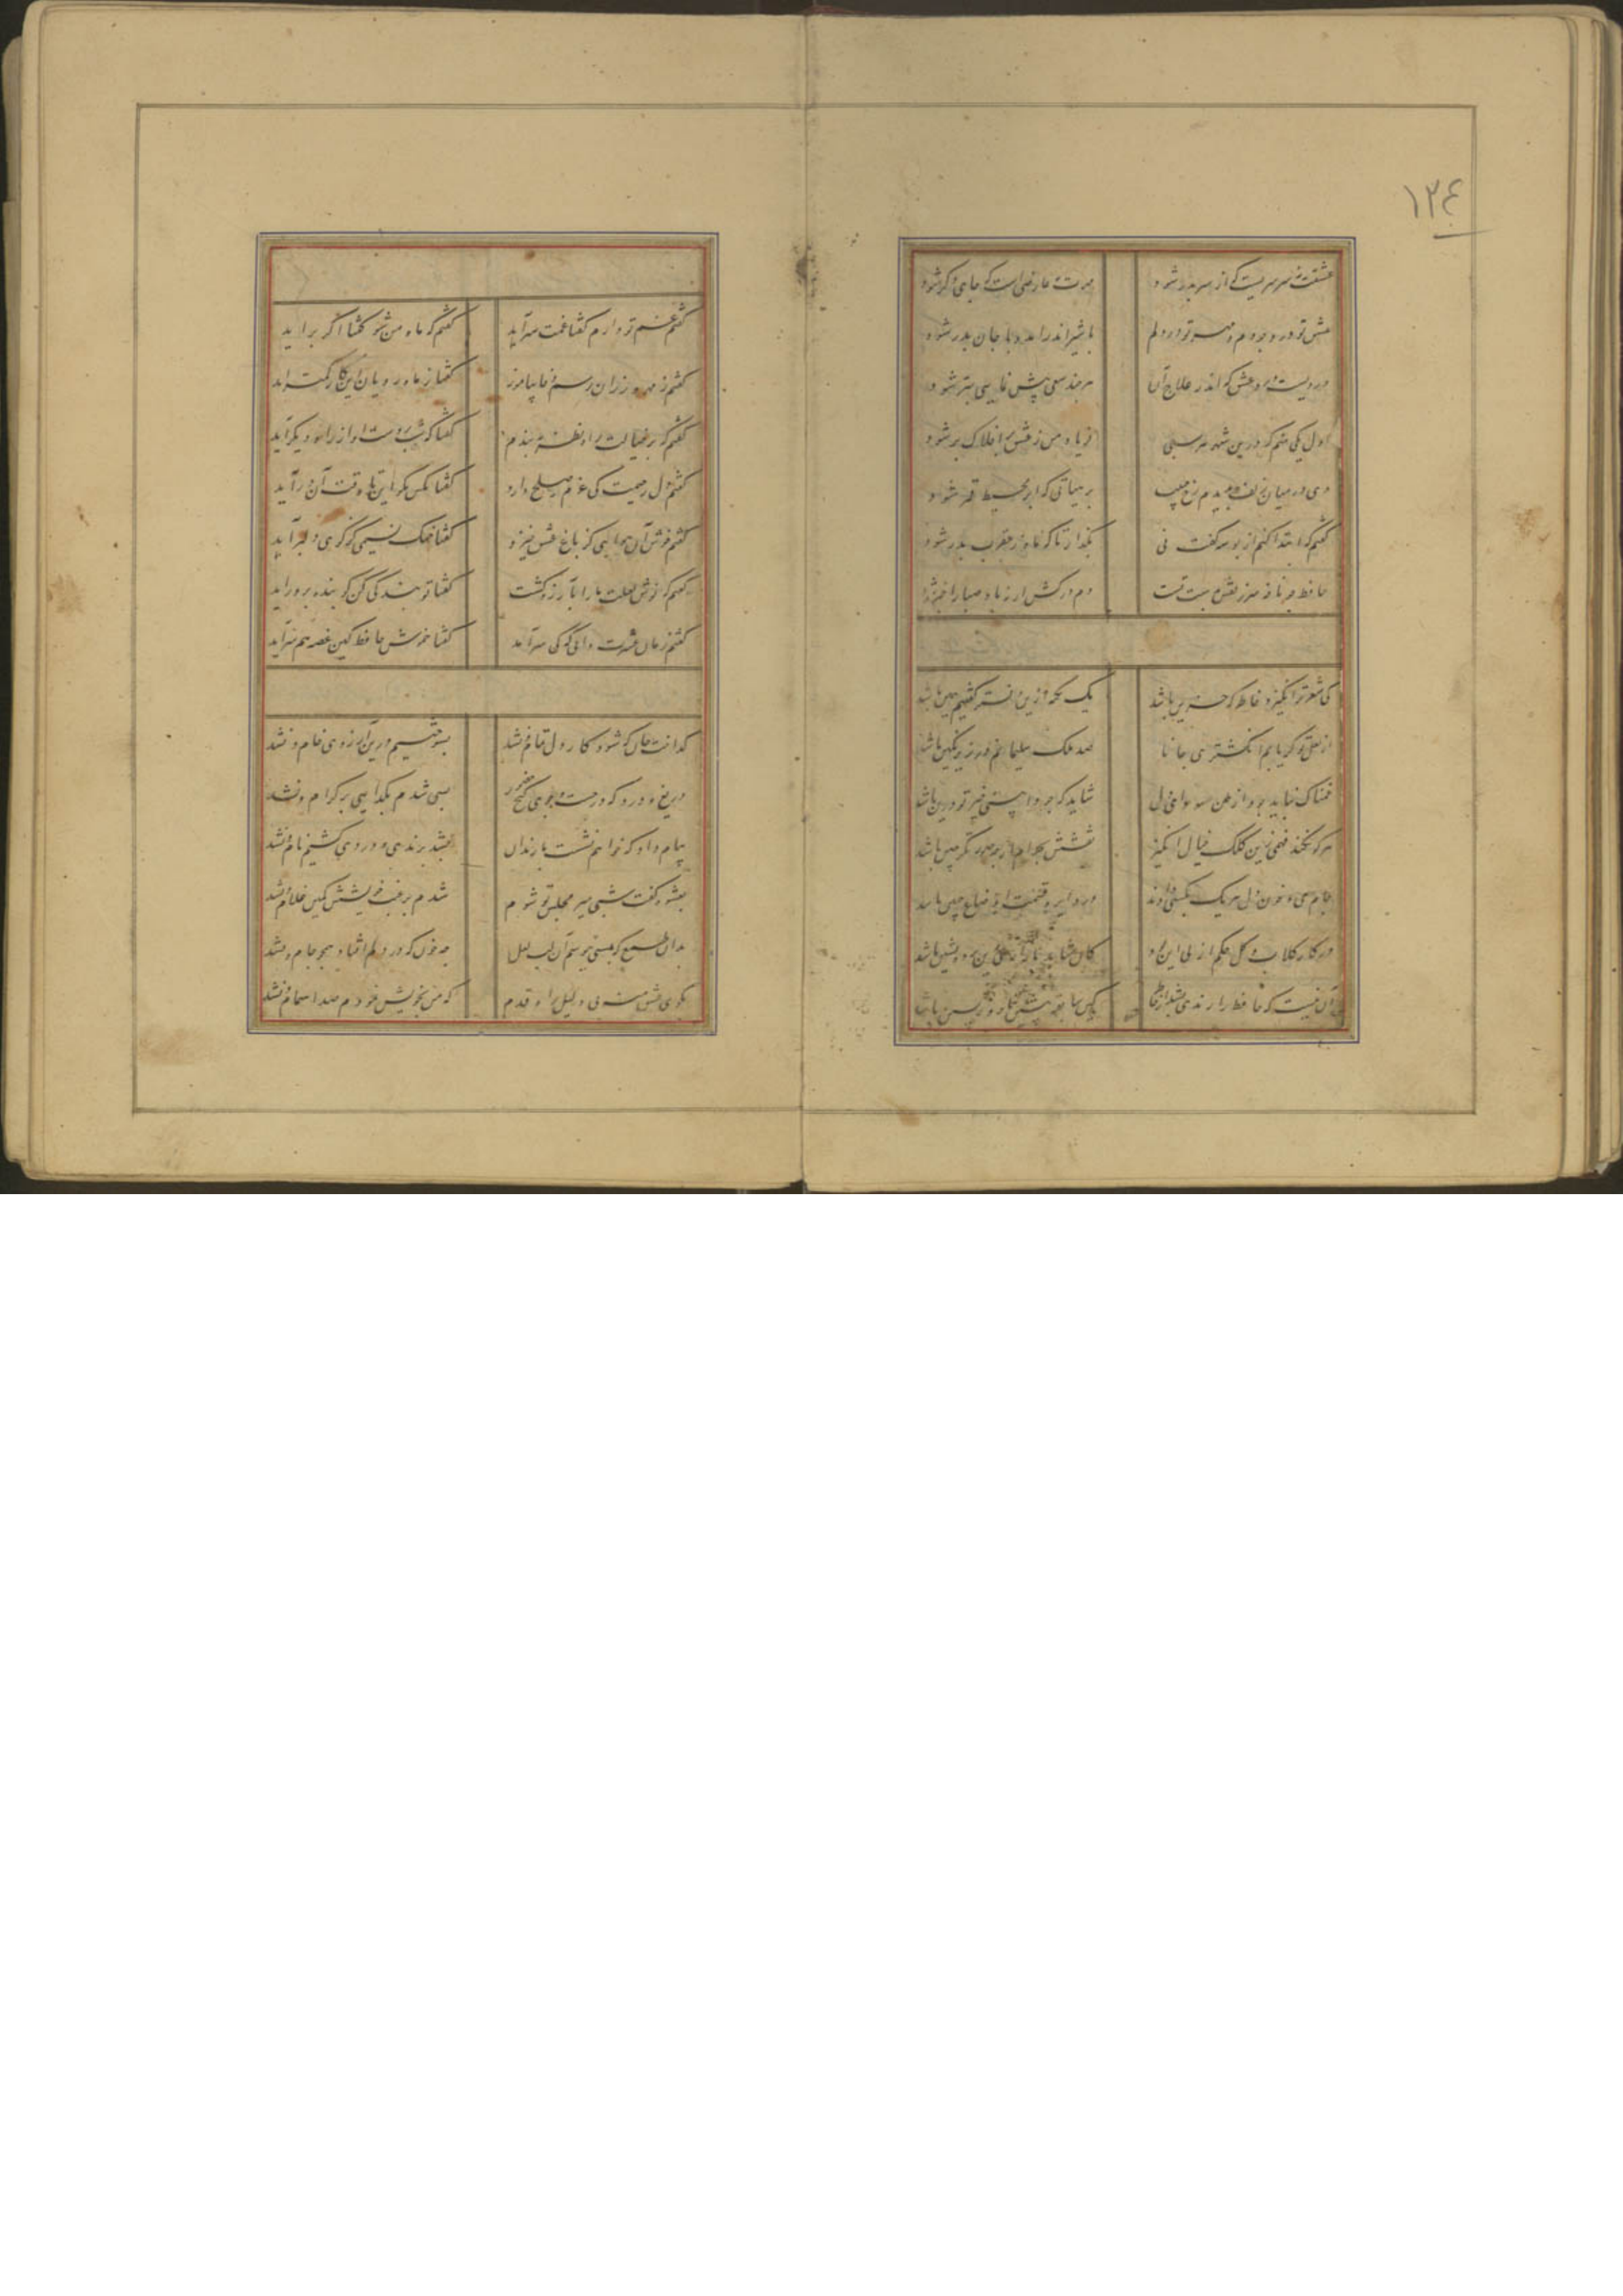 ۱۲۴
عشقت نه سرسریست که از سر بدر شود مهرت نه عارضی است که جای دگر شود
عشق تو در وجودم و مهر تو در دلم با شیر اندر آمد و با جان بدر شود
دردیست درد عشق که اندر علاج آن هر چند سعی بیش نمایی بتر شود
اول یکی منم که درین شهر هر شبی فریاد من ز عشق بافلاک بر شود
دی در میان زلف بدیدم رخ حبیب بر هیأتی که ابر محیط قمر شود
گفتم که ابتدا کنم از بوسه گفت نی بگذار تا که ماه ز عقرب بدر شود
حافظ دم درکش ار نه باد صبا را خبر شود
کی شعر تر انگیزد خاطر که حزین باشد یک نکته ازین دفتر گفتیم همین باشد
از لعل تو گر یابم انگشتری جانا صد ملک سلیمانم در زیر نگین باشد
غمناک نباید بود از طعن حسود ای دل شاید که چو وا بینی خیر تو درین باشد
هر کو نکند فهمی زین کلک خیال انگیز نقشش بحرام ار خود صورتگر چین باشد
جام می و خون دل هر یک بکسی دادند در دایره قسمت اوضاع چنین باشد
در کار گلاب و گل حکم ازلی این بود کان شاهد بازاری وین پرده نشین باشد
آن نیست که حافظ را رندی بشد از خاطر کین سابقه پیشین تا روز پسین باشد
گفتم غم تو دارم گفتا غمت سر آید گفتم که ماه من شو گفتا اگر برآید
گفتم ز مهرورزان رسم وفا بیاموز گفتا ز ماه رویان این کار کمتر آید
گفتم که بر خیالت راه نظر ببندم گفتا که شب روست او از راه دیگر آید
گفتم دل رحیمت کی عزم صلح دارد گفتا مگو با کس تا وقت آن در آید
گفتم خوش آن هوایی کز باغ عشق خیزد گفتا خنک نسیمی کز کوی دلبر آید
گفتم که نوش لعلت ما را بآرزو کشت گفتا تو بندگی کن کو بنده پرور آید
گفتم زمان عشرت دیدی که کی سر آمد گفتا خموش حافظ کین غصه هم سر آید
گداخت جان که شود کار دل تمام و نشد بسوختیم درین آرزوی خام و نشد
دریغ و درد که در جست و جوی گنج حضور بسی شدم بگدایی بر کرام و نشد
پیام داد که خواهم نشست با رندان بشد برندی و دردی کشیم نام و نشد
بعشوه گفت شبی میر مجلس تو شوم شدم برغبت خویشش کمین غلام و نشد
بدان طمع که بمستی ببوسم آن لب لعل چه خون که در دلم افتاد همچو جام و نشد
بکوی عشق منه بی دلیل راه قدم که من بخویش نمودم صد اهتمام و نشد